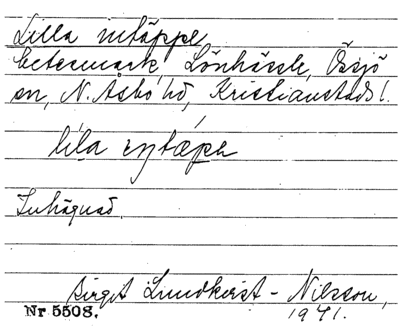 Lilla mtäppe
betesmark, Lönhässle, Össjö
sn, N. Åsbo hd, Kristianstads l.
líla ry̨tæpa
Inhägnad.
Birgit Lundkvist - Nilsson,
1941.
Nr 5508.